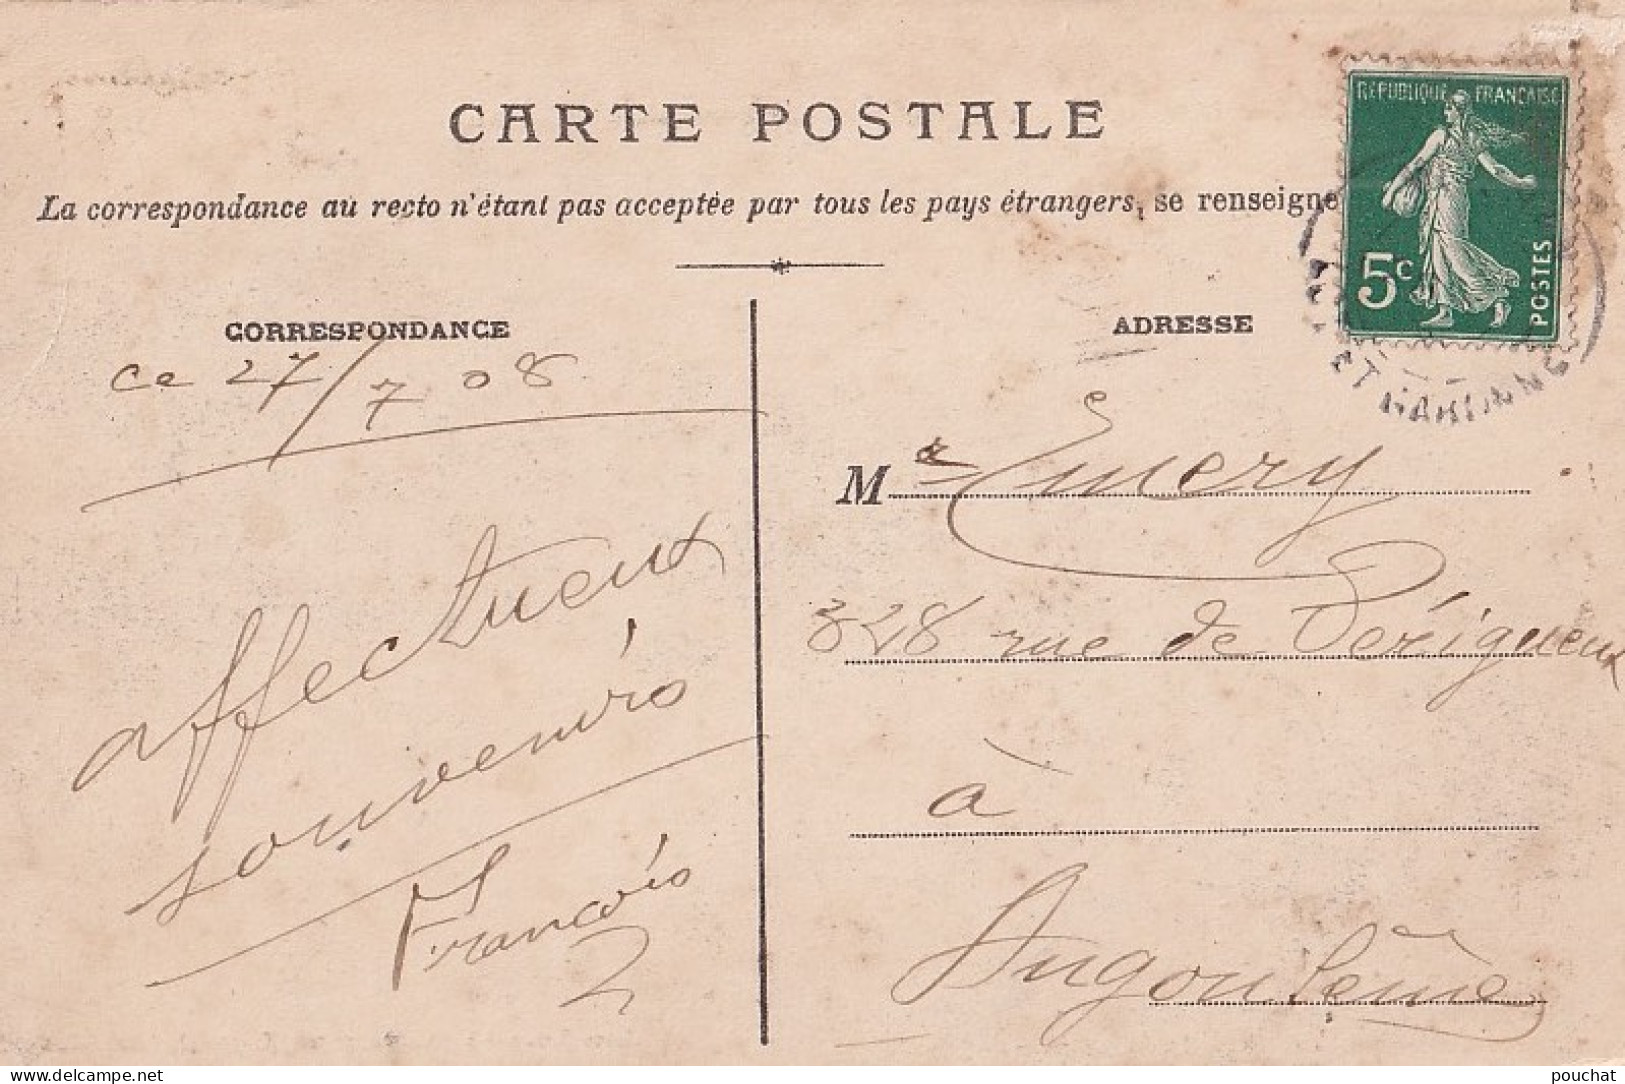 CARTE POSTALE
La correspondance au recto n'étant pas acceptée par tous les pays étrangers, se renseigne
REPUBLIQUE FRANCAISE
5c
POSTES
CORRESPONDANCE
ce 27/7 08
affectueux
souvenirs
François
ADRESSE
M Emery
328 rue de Périgueux
à
Angoulême
delcampe.net
pouchat